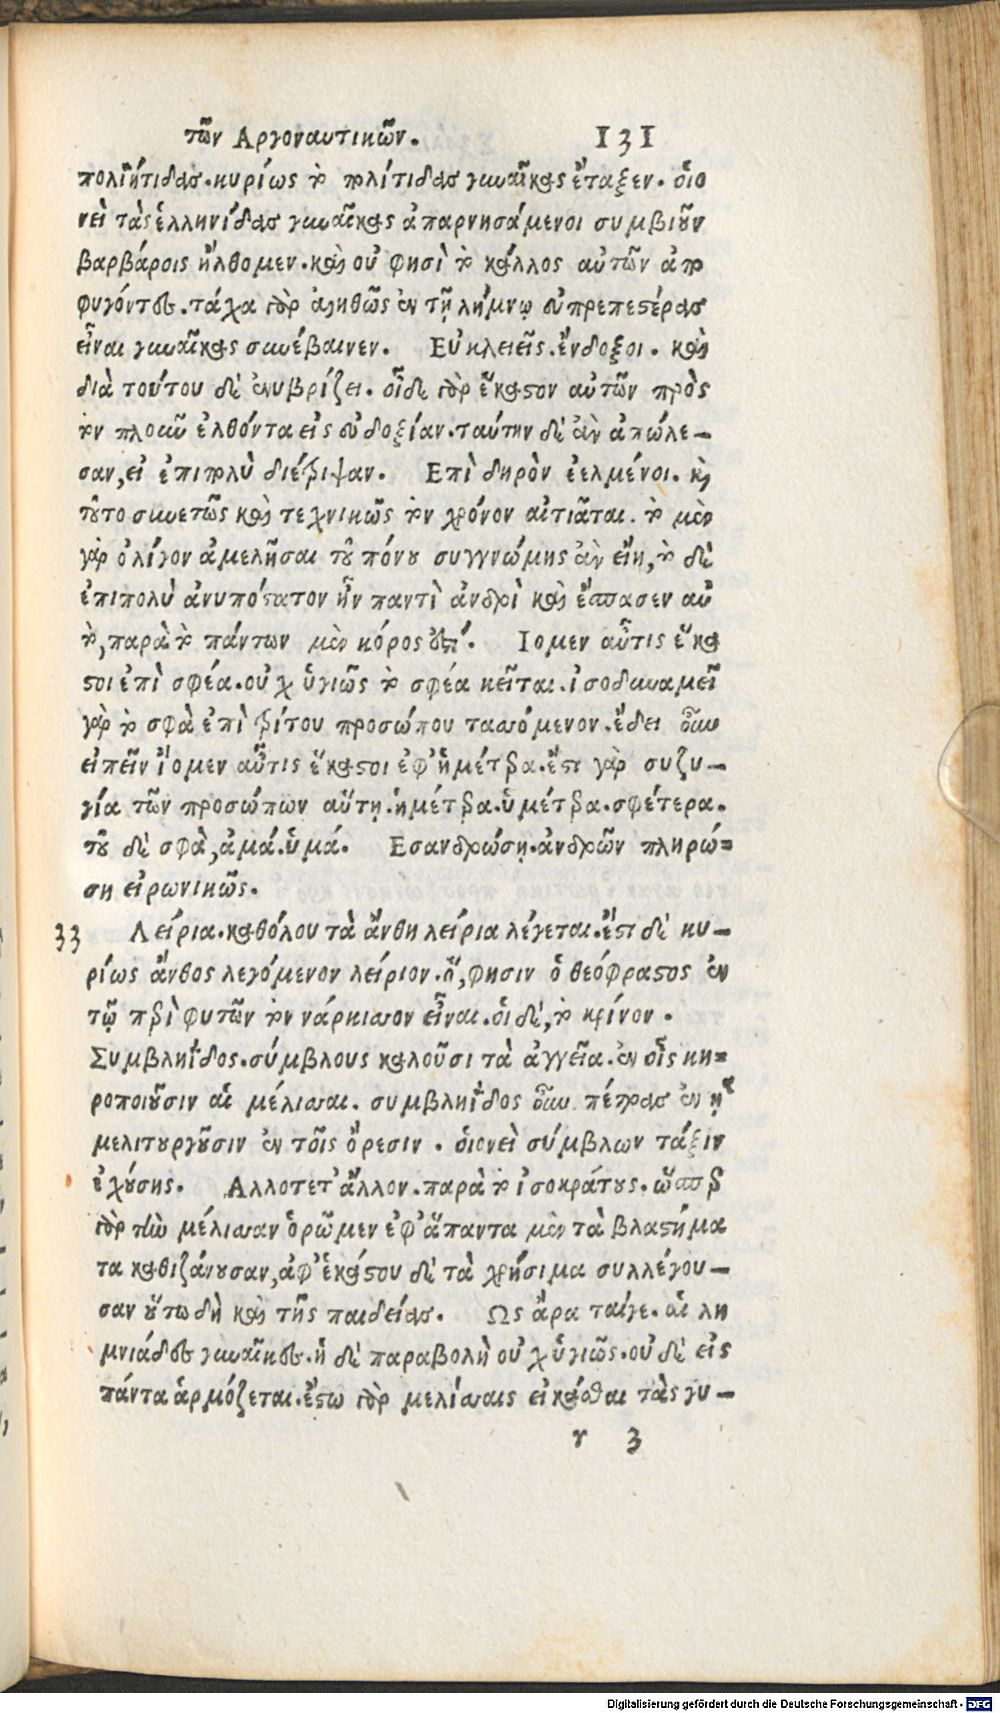 τῶν Αργοναυτικῶν. 131
πολιήτιδας. κυρίως τὸ πολίτιδας γυναῖκας ἔταξεν. οἷο
νεὶ τὰς ἑλληνίδας γυναῖκας ἀπαρνησάμενοι συμβιοῦν
βαρβάροις ἤλθομεν. καὶ οὔ φησὶ τὸ κάλλος αὐτῶν ἀπο
φυγόντες. τάχα γὰρ ἀληθῶς ἐν τῇ λήμνῳ εὐπρεπεστέρας
εἶναι γυναῖκας συνέβαινεν. Εὐκλειεῖς. ἔνδοξοι. καὶ
διὰ τούτου δὲ ἐνυβρίζει. οἶδε γὰρ ἕκαστον αὐτῶν πρὸς
τὸν πλοῦν ἐλθόντα εἰς εὐδοξίαν. ταύτην δὲ ἂν ἀπώλε-
σαν, εἰ ἐπιπολὺ διέτριψαν. Επὶ δηρὸν ἐελμένοι. καὶ
τοῦτο συνετῶς καὶ τεχνικῶς τὸν χρόνον αἰτιᾶται. τὸ μὲν
γὰρ ὀλίγον ἀμελῆσαι τοῦ πόνου συγγνώμης ἂν εἴη, τὸ δὲ
ἐπιπολὺ ἀνυπόστατον ἦν παντὶ ἀνδρὶ καὶ ἔσπασεν αὐ
τὸ, παρὰ τὸ πάντων μὲν κόρος ἐστί. Ιομεν αὖτις ἕκα
στοι ἐπὶ σφέα. οὐχ ὑγιῶς τὸ σφέα κεῖται. ἰσοδυναμεῖ
γὰρ τὸ σφὰ ἐπὶ τρίτου προσώπου τασσόμενον. ἔδει οὖν
εἰπεῖν ἴομεν αὖτις ἕκαστοι ἐφ' ἡμέτερα. ἔστι γὰρ συζυ-
γία τῶν προσώπων αὕτη. ἡμέτερα. ὑμέτερα. σφέτερα.
τοῦ δὲ σφὰ, ἀμά. ὑμά. Εσανδρώσῃ. ἀνδρῶν πληρώ-
ση εἰρωνικῶς.
33 Λείρια. καθόλου τὰ ἄνθη λείρια λέγεται. ἔστι δὲ κυ-
ρίως ἄνθος λεγόμενον λείριον. ὅ, φησιν ὁ θεόφραστος ἐν
τῷ περὶ φυτῶν τὸν νάρκισσον εἶναι. οἱ δέ, τὸ κρίνον.
Συμβληΐδος. σύμβλους καλοῦσι τὰ ἀγγεῖα. ἐν οἷς κη-
ροποιοῦσιν αἱ μέλισσαι. συμβληΐδος οὖν πέτρας ἐν ᾗ
μελιτουργοῦσιν ἐν τοῖς ὄρεσιν. οἱονεὶ σύμβλων τάξιν
ἐχούσης. Αλλοτετ' ἄλλον. παρὰ τὸ ἰσοκράτους. ὥσπερ
γὰρ τὴν μέλισσαν ὁρῶμεν ἐφ' ἅπαντα μὲν τὰ βλαστήμα
τα καθιζάνουσαν, ἀφ' ἑκάστου δὲ τὰ χρήσιμα συλλέγου-
σαν οὕτω δὴ καὶ τῆς παιδείας. Ως ἄρα ταίγε. αἱ λη
μνιάδες γυναῖκες. ἡ δὲ παραβολὴ οὐχ ὑγιῶς. οὐδὲ εἰς
πάντα ἁρμόζεται. ἔστω γὰρ μελίσσαις εἰκάσθαι τὰς γυ-
r 3
Digitalisierung gefördert durch die Deutsche Forschungsgemeinschaft - DFG